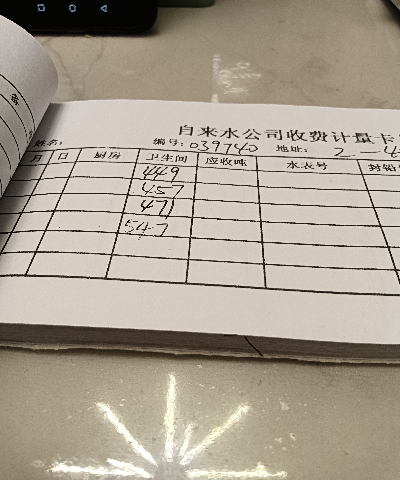 自来水公司收费计量卡
姓名: 编号:039740 地址: 2
月 日 厨房 卫生间 应收吨 水表号 封铅
449
457
471
547